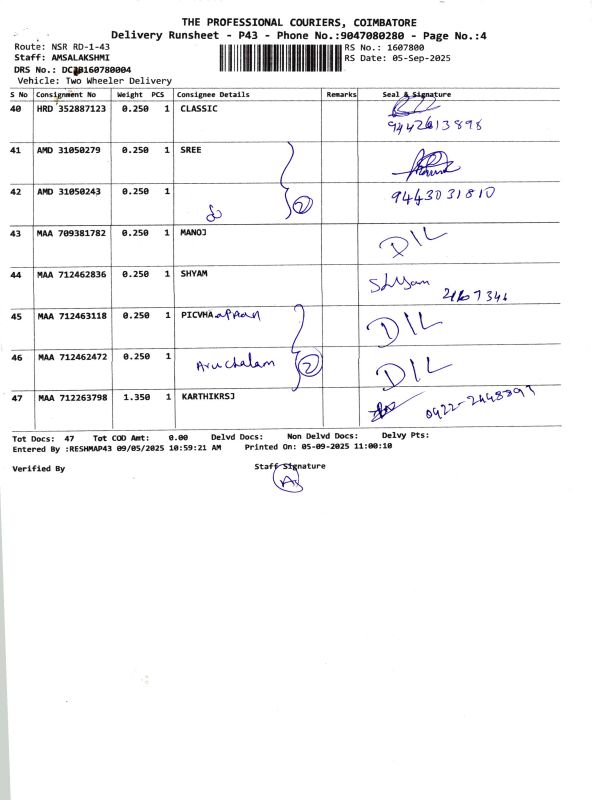 THE PROFESSIONAL COURIERS, COIMBATORE
Delivery Runsheet - P43 - Phone No.:9047080280 - Page No.:4
Route: NSR RD-1-43
RS No.: 1607800
Staff: AMSALAKSHMI
RS Date: 05-Sep-2025
DRS No.: 160780004
Vehicle: Two Wheeler Delivery
S No Consignment No Weight PCS Consignee Details Remarks Seal & Signature
40 HRD 352887123 0.250 1 CLASSIC
9442613898
41 AMD 31050279 0.250 1 SREE
42 AMD 31050243 0.250 1 9443031810
2
43 MAA 709381782 0.250 1 MANOJ DIL
44 MAA 712462836 0.250 1 SHYAM Shyam
45 MAA 712463118 0.250 1 PICVHA DIL
46 MAA 712462472 0.250 1 Aruchalam 2 DIL
47 MAA 712263798 1.350 1 KARTHIKRSJ
Tot Docs: 47 Tot COD Amt: 0.00 Delvd Docs: Non Delvd Docs: Delvy Pts:
Entered By :RESHMAP43 09/05/2025 10:59:21 AM Printed On: 05-09-2025 11:00:10
Verified By Staff Signature